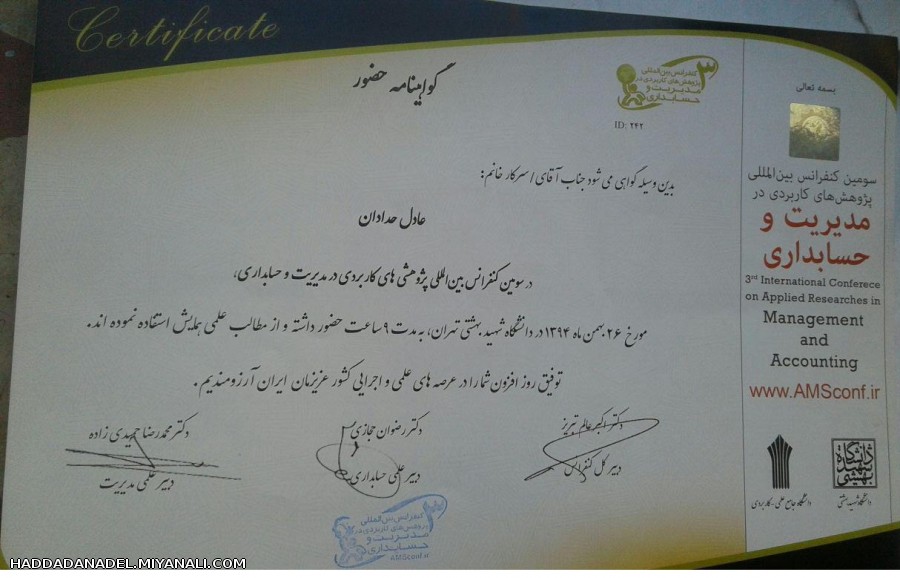 Certificate
گواهینامه حضور
۳
کنفرانس بین‌المللی
پژوهش‌های کاربردی در
مدیریت و
حسابداری
ID: ۲۴۲
بسمه تعالی
سومین کنفرانس بین‌المللی
پژوهش‌های کاربردی در
مدیریت و
حسابداری
3rd International Conferece
on Applied Researches in
Management
and
Accounting
www.AMSconf.ir
بدین وسیله گواهی می شود جناب آقای / سرکار خانم:
عادل حدادان
در سومین کنفرانس بین‌المللی پژوهشی های کاربردی در مدیریت و حسابداری،
مورخ ۲۶ بهمن ماه ۱۳۹۴ در دانشگاه شهید بهشتی تهران، به مدت ۹ ساعت حضور داشته و از مطالب علمی همایش استفاده نموده اند.
توفیق روز افزون شما را در عرصه های علمی و اجرایی کشور عزیزمان ایران آرزومندیم.
دکتر اکبر عالم تبریز
دبیر کل کنفرانس
دکتر رضوان حجازی
دبیر علمی حسابداری
دکتر محمدرضا حمیدی زاده
دبیر علمی مدیریت
۳
کنفرانس بین‌المللی
پژوهش‌های کاربردی در
مدیریت و
حسابداری
AMSconf.ir
دانشگاه شهید بهشتی
دانشگاه شهید بهشتی
دانشگاه جامع علمی-کاربردی
HADDADANADEL.MIYANALI.COM